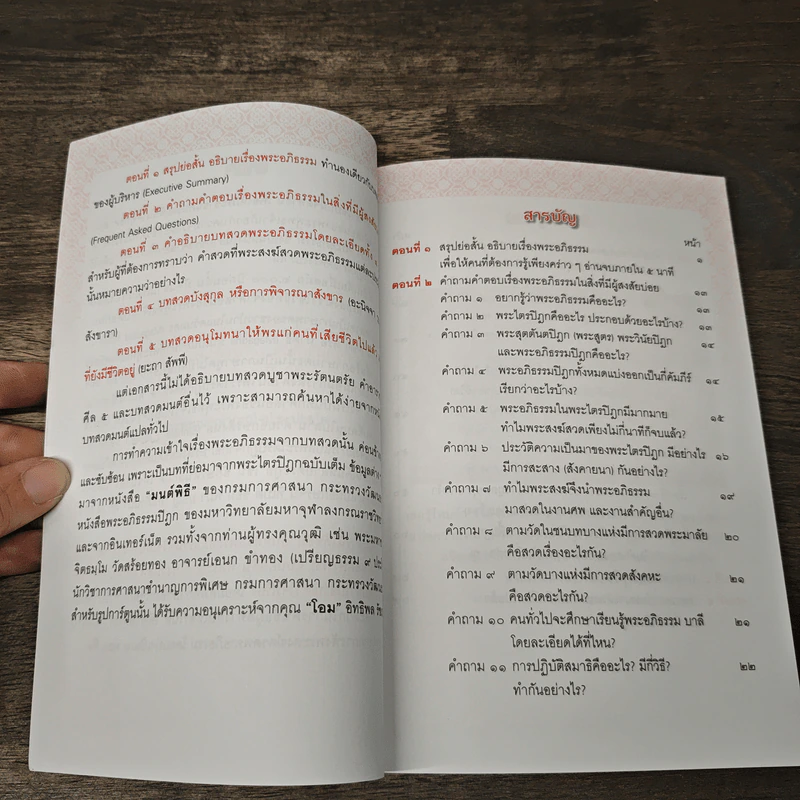 ตอนที่ ๑ สรุปย่อสั้น อธิบายเรื่องพระอภิธรรม ทำนองเดียวกับ
ของผู้บริหาร (Executive Summary)
ตอนที่ ๒ คำถามคำตอบเรื่องพระอภิธรรมในสิ่งที่มีผู้สงสัย
(Frequent Asked Questions)
ตอนที่ ๓ คำอธิบายบทสวดพระอภิธรรมโดยละเอียด
สำหรับผู้ที่ต้องการทราบว่า คำสวดที่พระสงฆ์สวดพระอภิธรรมแต่ละ
นั้นหมายความว่าอย่างไร
ตอนที่ ๔ บทสวดบังสุกุล หรือการพิจารณาสังขาร (อะนิจจา
สังขารา)
ตอนที่ ๕ บทสวดอนุโมทนาให้พรแก่คนที่เสียชีวิตไปแล้ว
ที่ยังมีชีวิตอยู่ (ยะถา สัพพี)
แต่เอกสารนี้ไม่ได้อธิบายบทสวดบูชาพระรัตนตรัย คำอา
ศีล ๕ และบทสวดมนต์อื่นไว้ เพราะสามารถค้นหาได้ง่ายจาก
บทสวดมนต์แปลทั่วไป
การทำความเข้าใจเรื่องพระอภิธรรมจากบทสวดนั้น ค่อนข้าง
และซับซ้อน เพราะเป็นบทที่ย่อมาจากพระไตรปิฎกฉบับเต็ม ข้อมูลต่าง
มาจากหนังสือ "มนต์พิธี" ของกรมการศาสนา กระทรวงวัฒน
หนังสือพระอภิธรรมปิฎก ของมหาวิทยาลัยมหาจุฬาลงกรณราช
และจากอินเทอร์เน็ต รวมทั้งจากท่านผู้ทรงคุณวุฒิ เช่น พระมหา
จิตธมฺโม วัดสร้อยทอง อาจารย์เอนก ขำทอง (เปรียญธรรม ๙
นักวิชาการศาสนาชำนาญการพิเศษ กรมการศาสนา กระทรวงวัฒ
สำหรับรูปการ์ตูนนั้น ได้รับความอนุเคราะห์จากคุณ "โอม" อิทธิพล
สารบัญ
หน้า
ตอนที่ ๑ สรุปย่อสั้น อธิบายเรื่องพระอภิธรรม ๑
เพื่อให้คนที่ต้องการรู้เพียงคร่าว ๆ อ่านจบภายใน ๕ นาที
ตอนที่ ๒ คำถามคำตอบเรื่องพระอภิธรรมในสิ่งที่มีผู้สงสัยบ่อย ๑๓
คำถาม ๑ อยากรู้ว่าพระอภิธรรมคืออะไร? ๑๓
คำถาม ๒ พระไตรปิฎกคืออะไร ประกอบด้วยอะไรบ้าง? ๑๓
คำถาม ๓ พระสุตตันตปิฎก (พระสูตร) พระวินัยปิฎก ๑๔
และพระอภิธรรมปิฎกคืออะไร?
คำถาม ๔ พระอภิธรรมปิฎกทั้งหมดแบ่งออกเป็นกี่คัมภีร์ ๑๔
เรียกว่าอะไรบ้าง?
คำถาม ๕ พระอภิธรรมในพระไตรปิฎกมีมากมาย ๑๕
ทำไมพระสงฆ์สวดเพียงไม่กี่นาทีก็จบแล้ว?
คำถาม ๖ ประวัติความเป็นมาของพระไตรปิฎก มีอย่างไร ๑๖
มีการสะสาง (สังคายนา) กันอย่างไร?
คำถาม ๗ ทำไมพระสงฆ์จึงนำพระอภิธรรม ๑๙
มาสวดในงานศพ และงานสำคัญอื่น?
คำถาม ๘ ตามวัดในชนบทบางแห่งมีการสวดพระมาลัย ๒๐
คือสวดเรื่องอะไรกัน?
คำถาม ๙ ตามวัดบางแห่งมีการสวดสังคหะ ๒๑
คือสวดอะไรกัน?
คำถาม ๑๐ คนทั่วไปจะศึกษาเรียนรู้พระอภิธรรม บาลี ๒๑
โดยละเอียดได้ที่ไหน?
คำถาม ๑๑ การปฏิบัติสมาธิคืออะไร? มีกี่วิธี? ๒๒
ทำกันอย่างไร?